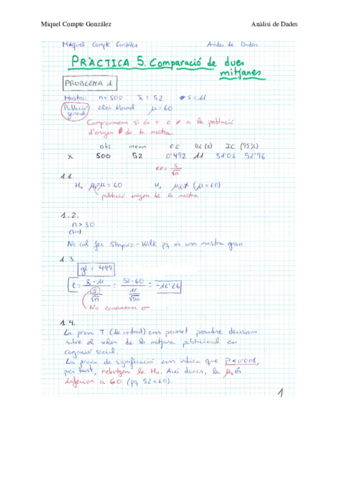 Miquel Compte González
Anàlisi de Dades
Miquel Compte González Anàlisi de Dades
PRÀCTICA 5. Comparació de dues
mitjanes
PROBLEMA 1
Mostra: n=500 x̄ = 52 s = 11
Població general Dist. Normal μ=60
Comprovarem si és = o ≠ a la població
d'origen de la mostra.
obs mean ES DE (s) IC (95%)
x 500 52 0'492 11 51'03 52'96
ES = s/√n
1.1.
H₀ μ₁=μ=60 H₁ μ₁≠ (μ=60)
població origen de la mostra
1.2.
n>30
No cal fer Shapiro-Wilk pq és una mostra gran.
1.3.
gl = 499
t = (x̄ - μ)/(s/√n) = (52-60)/(11/√n) = -16'26
No coneixem σ
1.4.
La prova T (de Student) ens permet prendre decisions
sobre el valor de la mitjana poblacional en
cognició social.
La prova de significació ens indica que P<0'001,
per tant, rebutgem la H₀. Així doncs, la μ₁ és
inferior a 60. (pq 52<60).
1